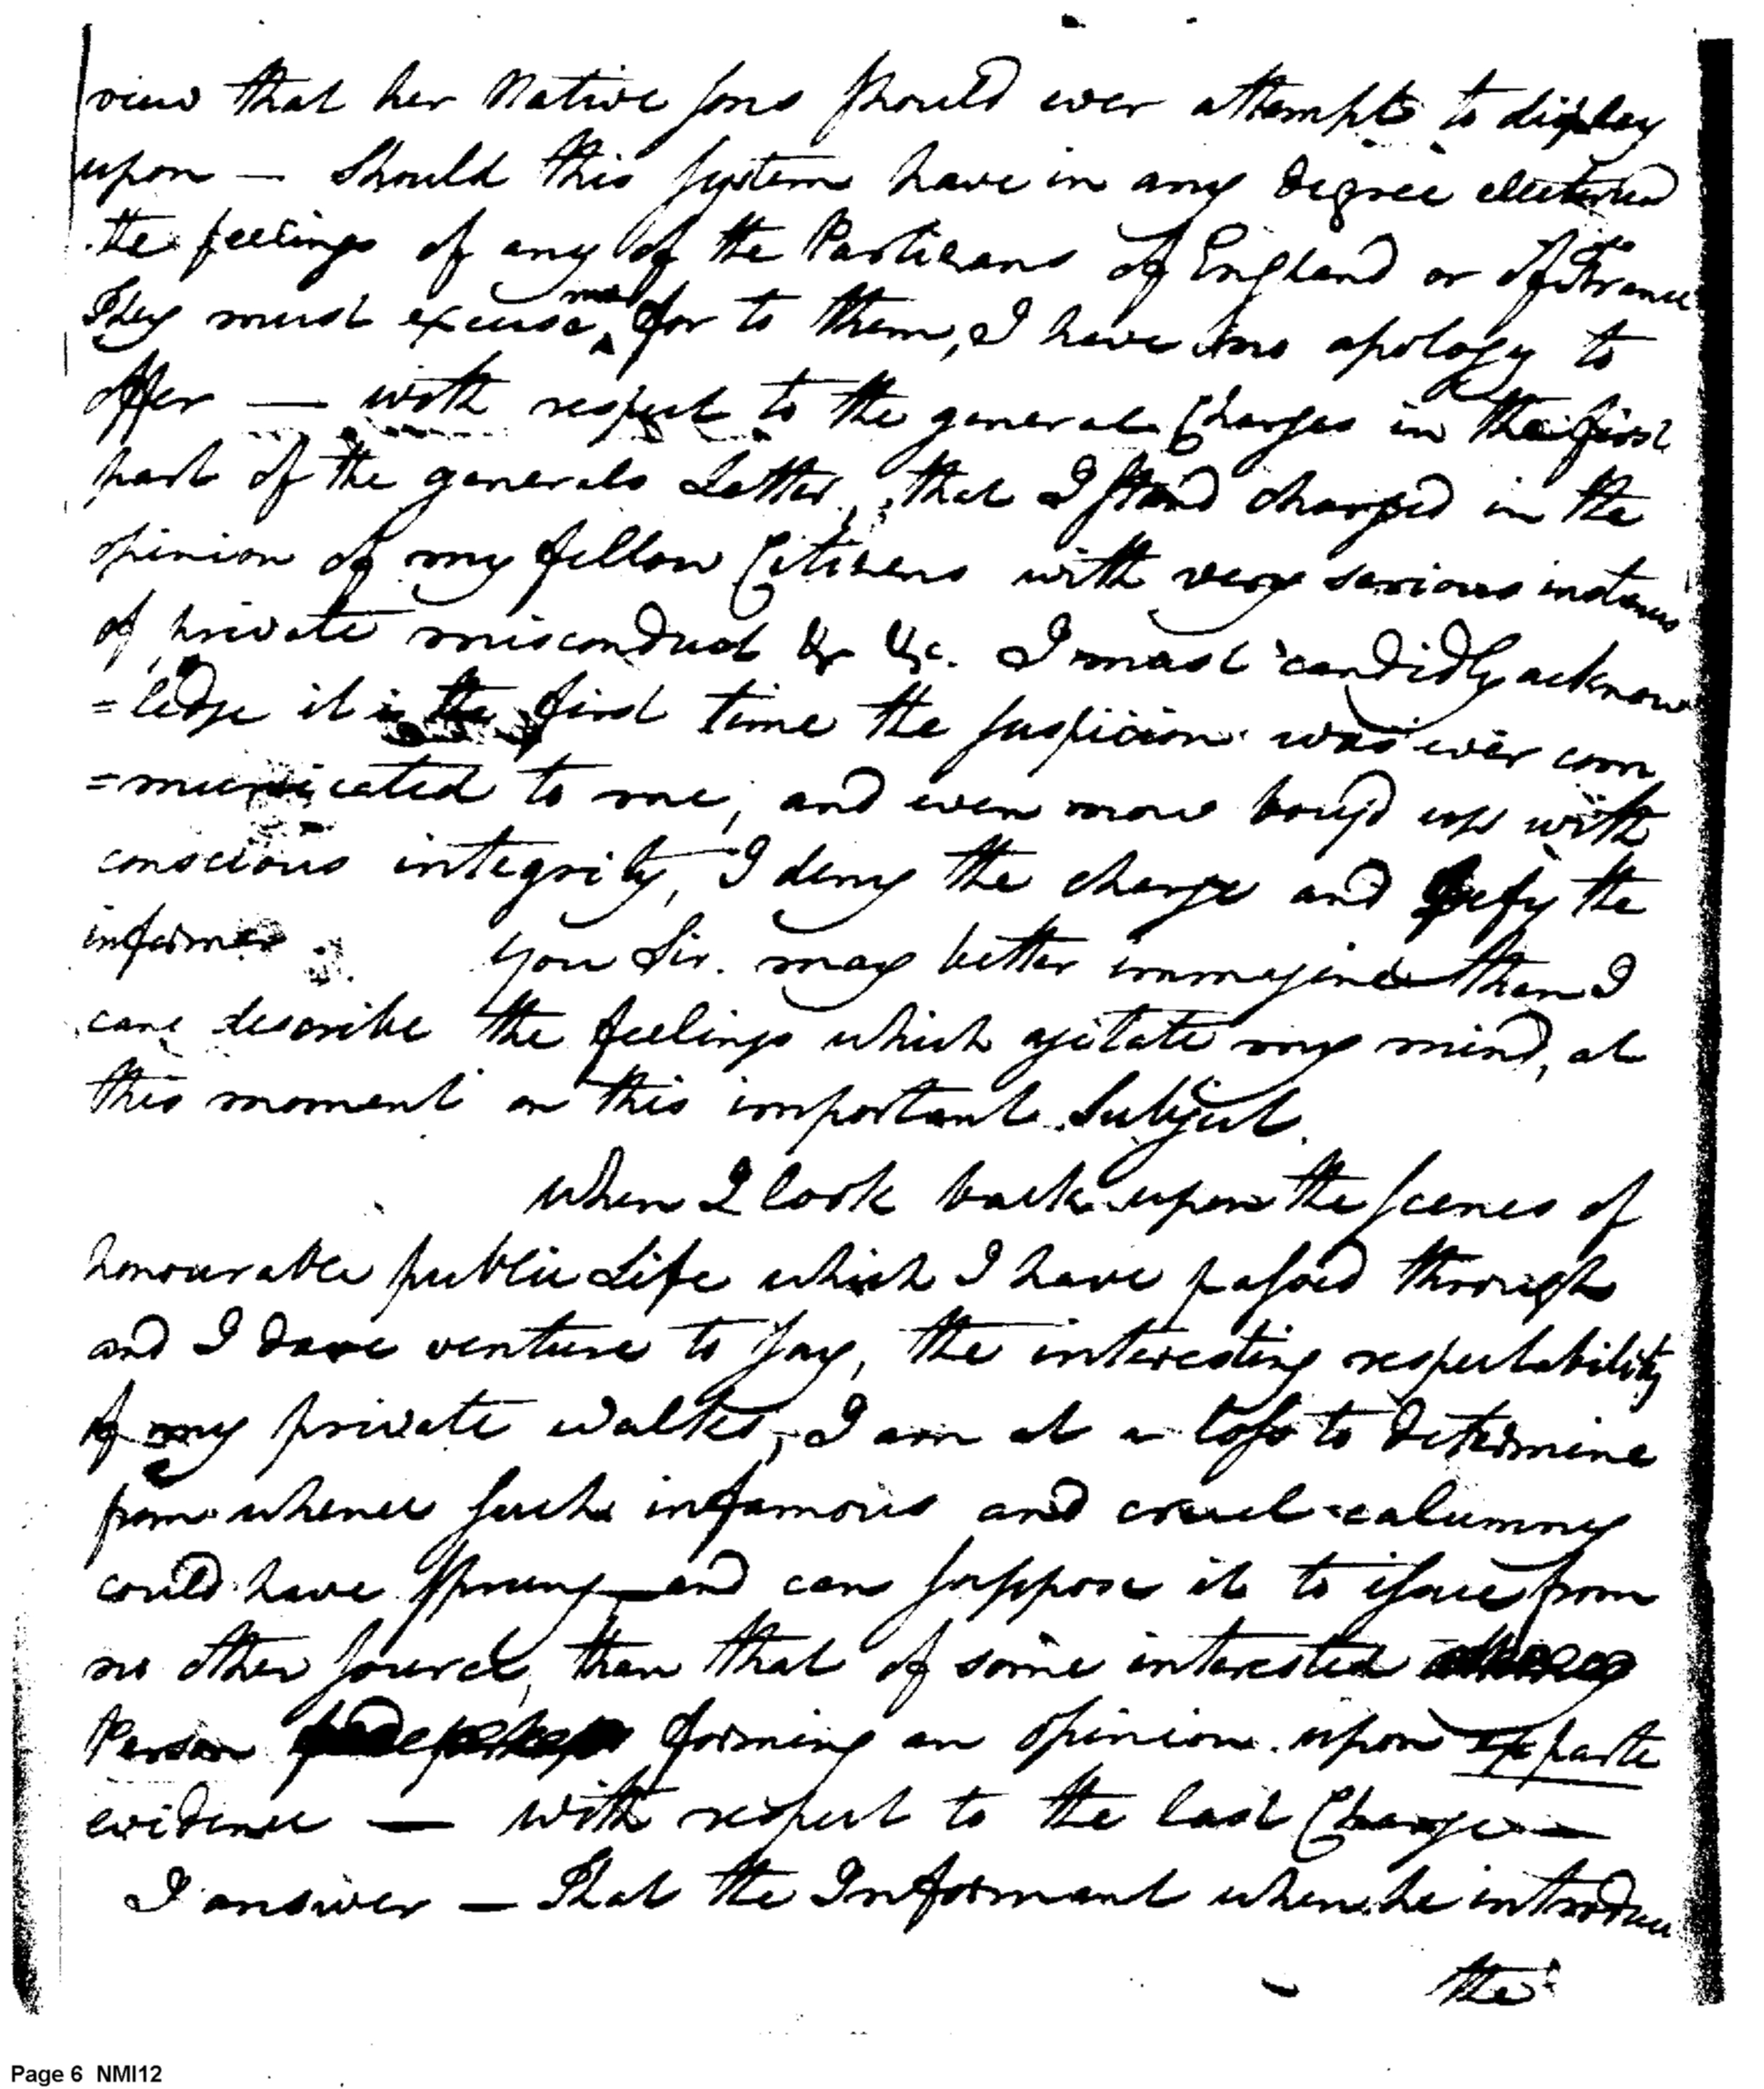 view that her Native sons should ever attempt to display
upon — Should this system have in any degree
the feelings of any of the Partizans of England or of France
They must excuse me for to them, I have no apology to
offer — with respect to the general Charges in the first
part of the generals Letter, that I stand charged in the
opinion of my fellow Citizens with very serious instances
of private misconduct &c &c. I must candidly acknow
=ledge it is the first time the suspicion was ever com
=municated to me, and even more bouy'd up with
conscious integrity, I deny the charge and defy the
informer. You Sir. may better immagine than I
can describe the feelings which agitate my mind, at
this moment on this important Subject.
when I look back upon the scenes of
honourable public Life which I have passed through
and I dare venture to say, the interesting respectability
of my private walks, I am at a loss to determine
from whence such infamous and cruel calumny
could have sprung — and can suppose it to issue from
no other source, than that of some interested
Person forming an opinion upon exparte
evidence — with respect to the last Charge —
I answer — That the Informant when he introduces
the
Page 6 NMI12